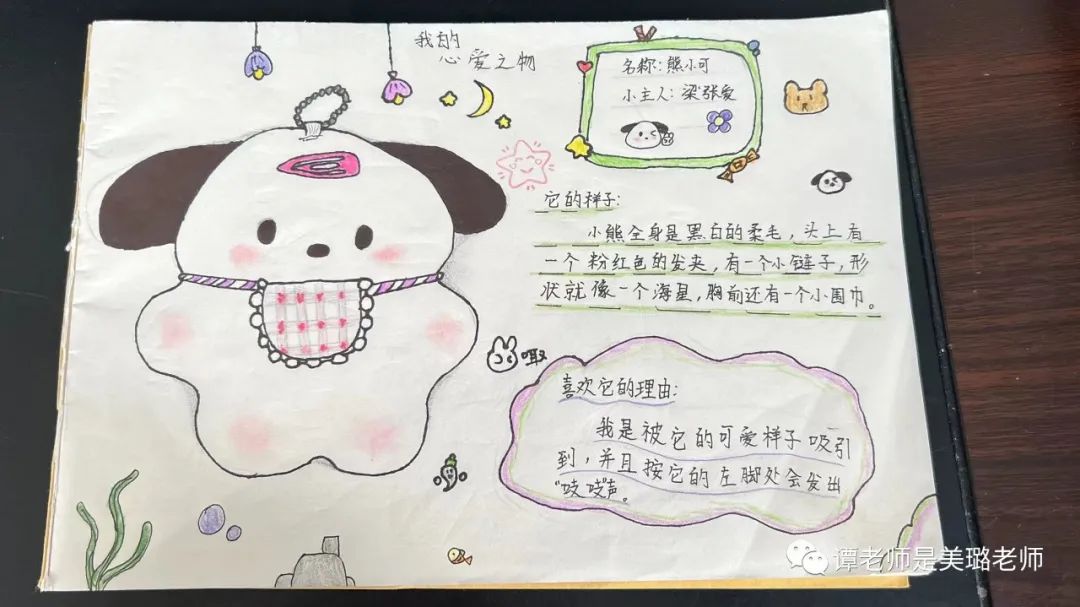 我的
心爱之物
名称:熊小可
小主人:梁张爱
它的样子:
小熊全身是黑白的柔毛,头上有
一个粉红色的发夹,有一个小链子,形
状就像一个海星,胸前还有一个小围巾。
喜欢它的理由:
我是被它的可爱样子吸引
到,并且按它的左脚处会发出
“吱吱”声。
谭老师是美璐老师